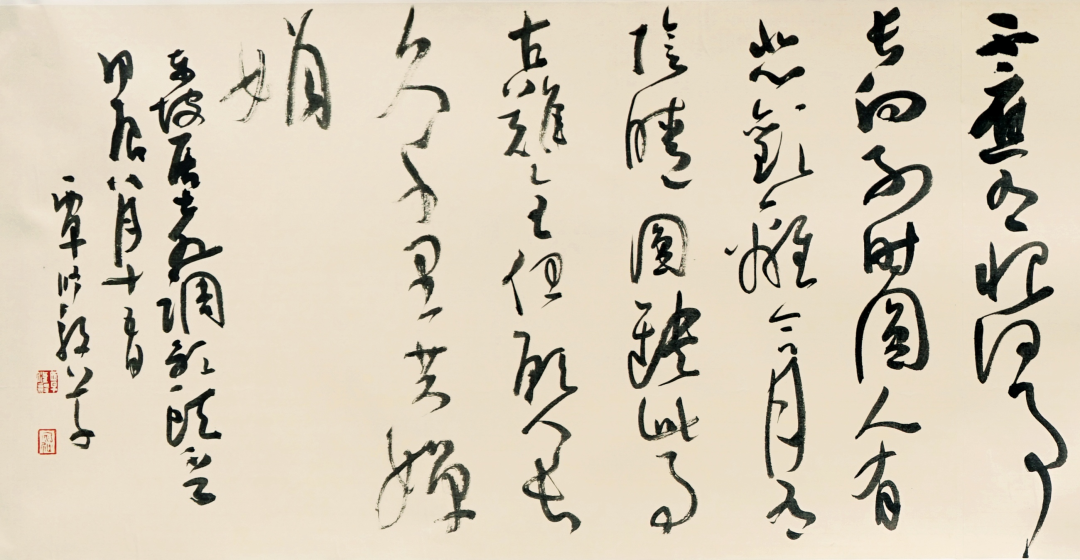 不應有恨何事
长向别时圆人有
悲歡離合月有
陰晴圆缺此事
古難全但願人长
久千里共嬋
娟
東坡居士水調歌頭
甲辰八月十五日
覃